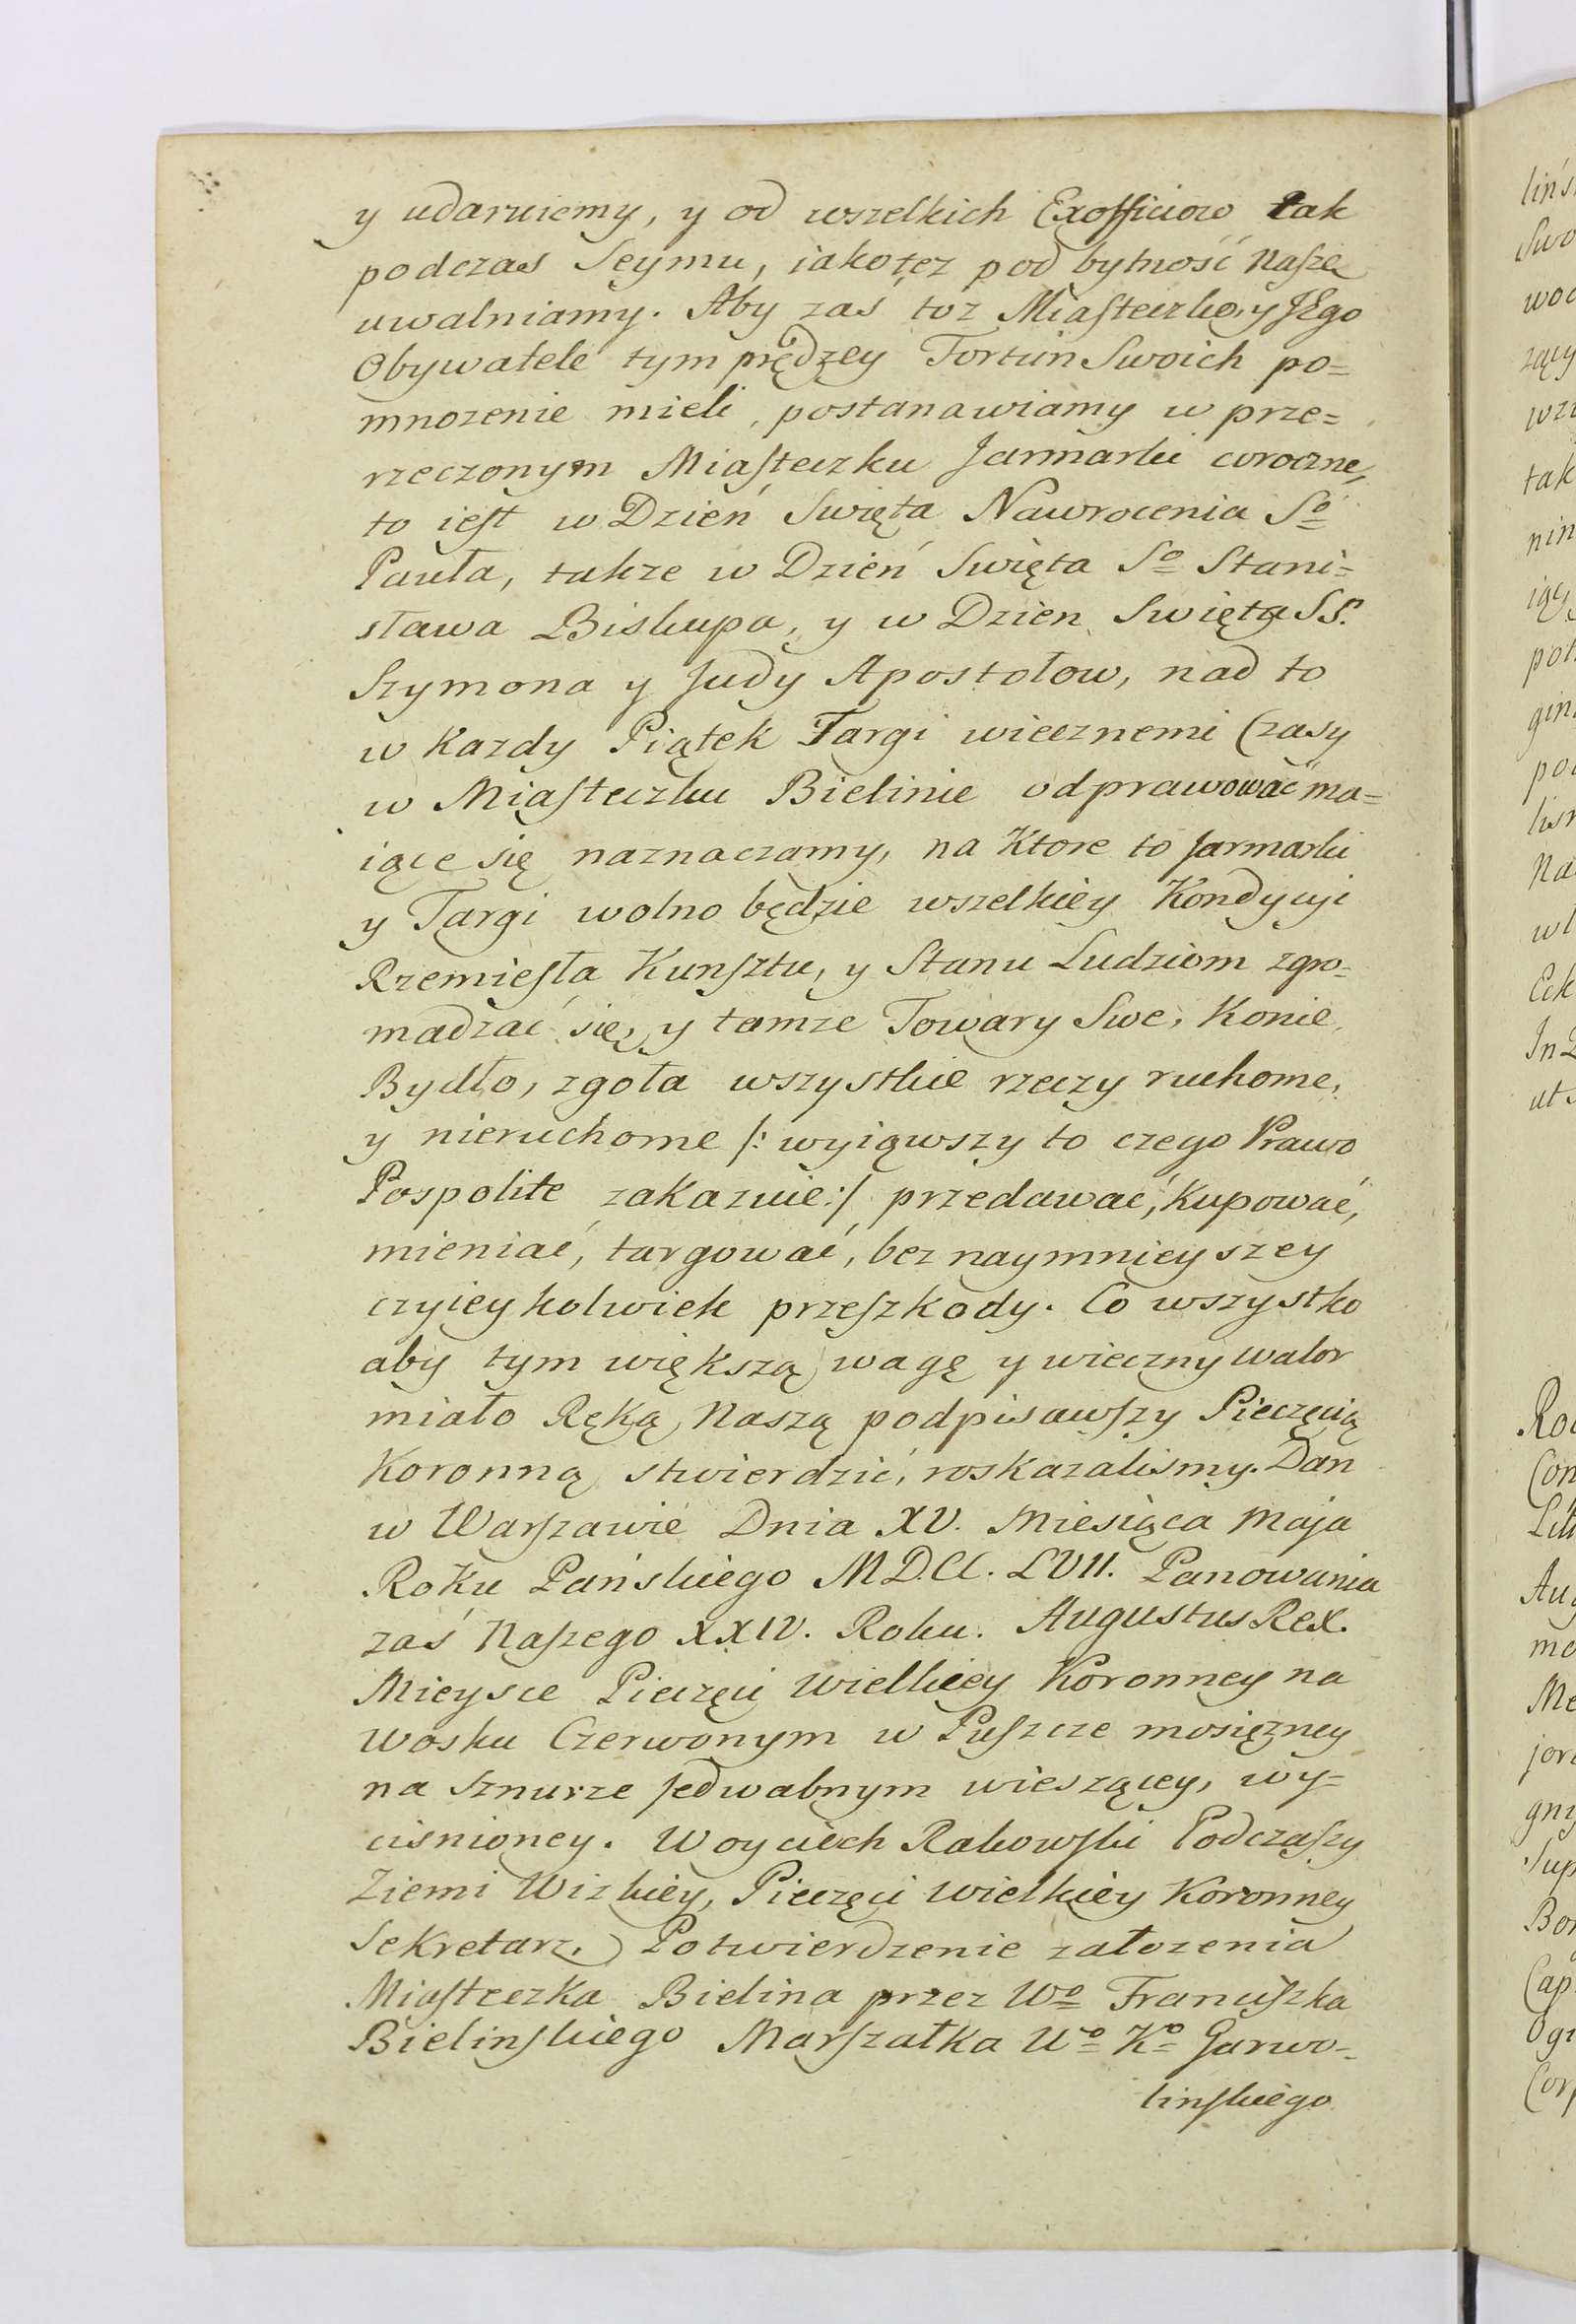 y udaruiemy, y od wszelkich Exofficiow tak
podczas Seymu, iakotez pod bytność Naszę
uwalniamy. Aby zaś toz Miasteczko, y JEgo
Obywatele tym prędzey Fortun Swoich po=
mnozenie mieli, postanawiamy w prze=
rzeczonym Miasteczku Jarmarki coroczne,
to iest w Dzień Swięta Nawrocenia So
Pawła, takze w Dzień Swięta So Stani=
sława Biskupa, y w Dzien Swięta SS.
Szymona y Judy Apostołow, nad to
w Kazdy Piątek Targi wiecznemi Czasy
w Miasteczku Bielinie odprawować ma=
iące się naznaczamy, na Ktore to Jarmarki
y Targi wolno będzie wszelkiey Kondycyi
Rzemiesła Kunsztu, y Stanu Ludziom zgro=
madzać się, y tamze Towary Swe, Konie,
Bydło, zgoła wszystkie rzeczy ruchome,
y nieruchome /: wyiąwszy to czego Prawo
Pospolite zakazuie :/ przedawać, Kupować,
mieniać, targować, bez naymnieyszey
czyieykolwiek przeszkody. Co wszystko
aby tym większą wagę y wieczny walor
miało Ręką Naszą podpisawszy Pieczęcią
Koronną stwierdzić, roskazalismy. Dan
w Warszawie Dnia XV. Miesiąca Maja
Roku Pańskiego MDCC. LVII. Panowania
zaś Naszego XXIV. Roku. Augustus Rex.
Mieysce Pieczęci Wielkiey Koronney na
Wosku Czerwonym w Puszcze mosięzney
na Sznurze Jedwabnym wieszącey, wy=
cisnioney. Woyciech Rakowski Podczaszy
Ziemi Wizkiey, Pieczęci Wielkiey Koronney
Sekretarz. Potwierdzenie załozenia
Miasteczka Bielina przez Wo Franciszka
Bielinskiego Marszałka Wo Ko Garwo=
linskiego